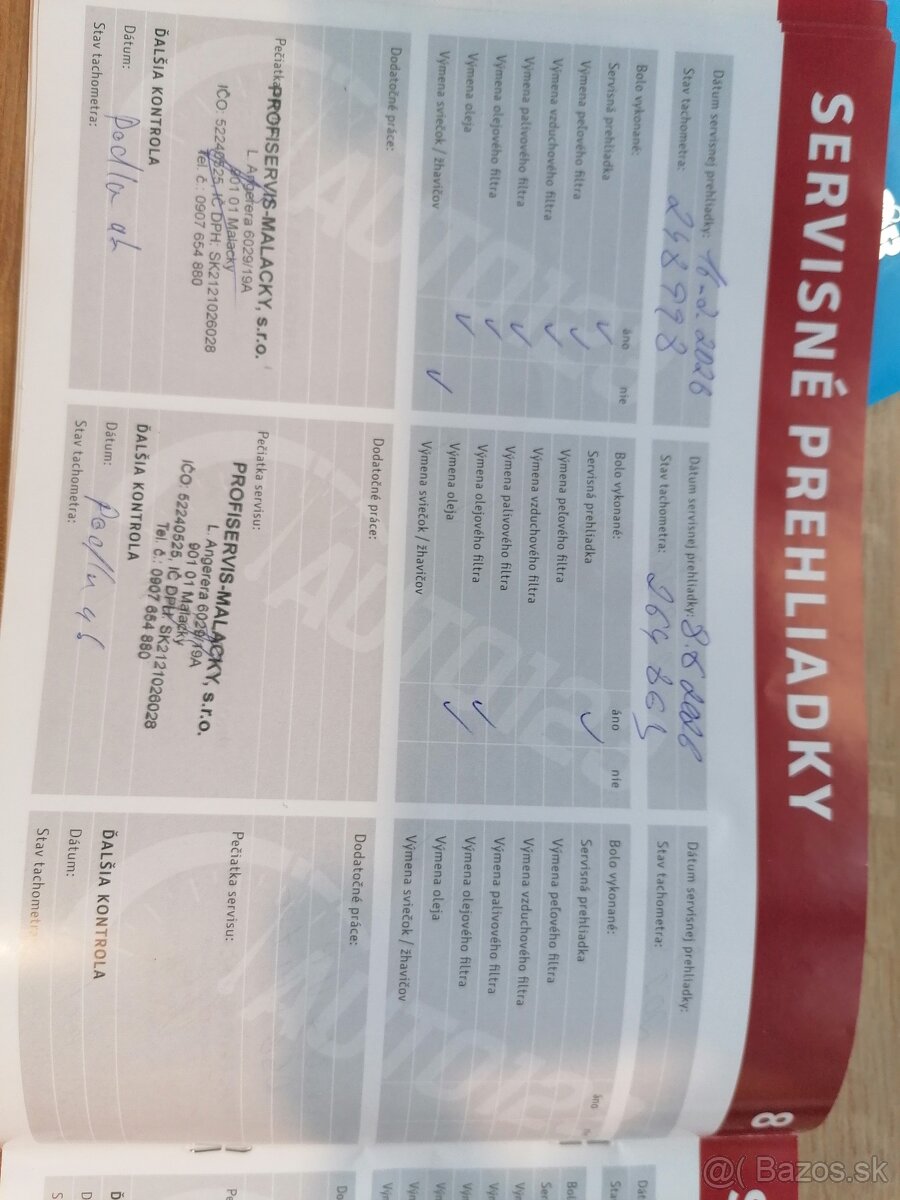 SERVISNÉ PREHLIADKY
Dátum servisnej prehliadky: 2026
Stav tachometra: 248 998
Bolo vykonané: áno nie
Servisná prehliadka ✓
Výmena peľového filtra ✓
Výmena vzduchového filtra ✓
Výmena palivového filtra ✓
Výmena olejového filtra ✓
Výmena oleja ✓
Výmena sviečok / žhavičov ✓
Dodatočné práce:
Pečiatka
PROFISERVIS-MALACKY, s.r.o.
L. Angerera 6029/19A
901 01 Malacky
IČO: 52240525, IČ DPH: SK2121026028
Tel. č.: 0907 654 880
ĎALŠIA KONTROLA
Dátum: Podľa
Stav tachometra:
Dátum servisnej prehliadky: 2026
Stav tachometra: 264
Bolo vykonané: áno nie
Servisná prehliadka ✓
Výmena peľového filtra
Výmena vzduchového filtra
Výmena palivového filtra
Výmena olejového filtra ✓
Výmena oleja ✓
Výmena sviečok / žhavičov
Dodatočné práce:
Pečiatka servisu:
PROFISERVIS-MALACKY, s.r.o.
L. Angerera 6029/19A
901 01 Malacky
IČO: 52240525, IČ DPH: SK2121026028
Tel. č.: 0907 654 880
ĎALŠIA KONTROLA
Dátum: Podľa
Stav tachometra:
Dátum servisnej prehliadky:
Stav tachometra:
Bolo vykonané: áno
Servisná prehliadka
Výmena peľového filtra
Výmena vzduchového filtra
Výmena palivového filtra
Výmena olejového filtra
Výmena oleja
Výmena sviečok / žhavičov
Dodatočné práce:
Pečiatka servisu:
ĎALŠIA KONTROLA
Dátum:
Stav tachometra:
8
AUTO123
Bazos.sk